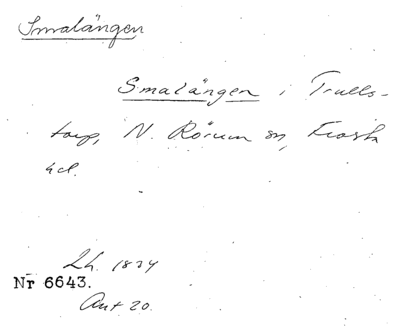 Smalängen
Smalängen i Trulls-
torp, N. Rörum sn, Frosta
hd.
Lh. 1834
Nr 6643.
Ant 20.